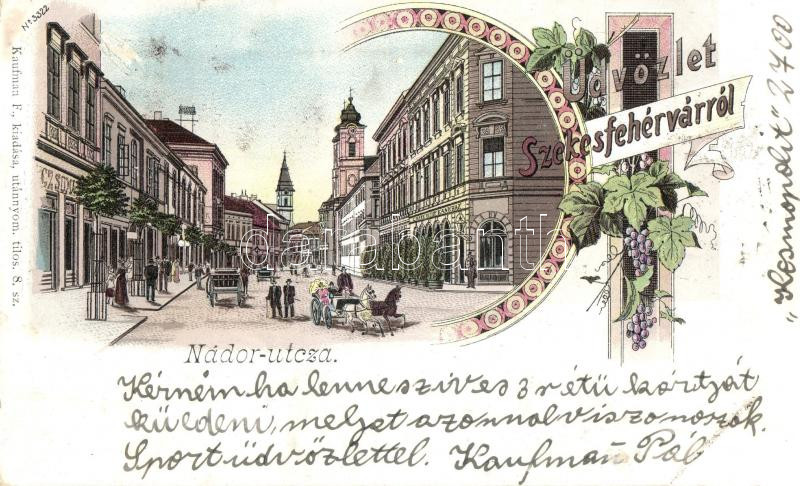 No 3322
Kaufman F., kiadása, utánnyom. tilos. 8. sz.
Üdvözlet
Székesfehérvárról
"Kosmopolit" 2700
darabanth
Nádor-utcza.
Kérném ha lenne szives 3 rétü kártyát
küldeni, melyet azonnal viszonozok.
Sport üdvözlettel. Kaufman Pál